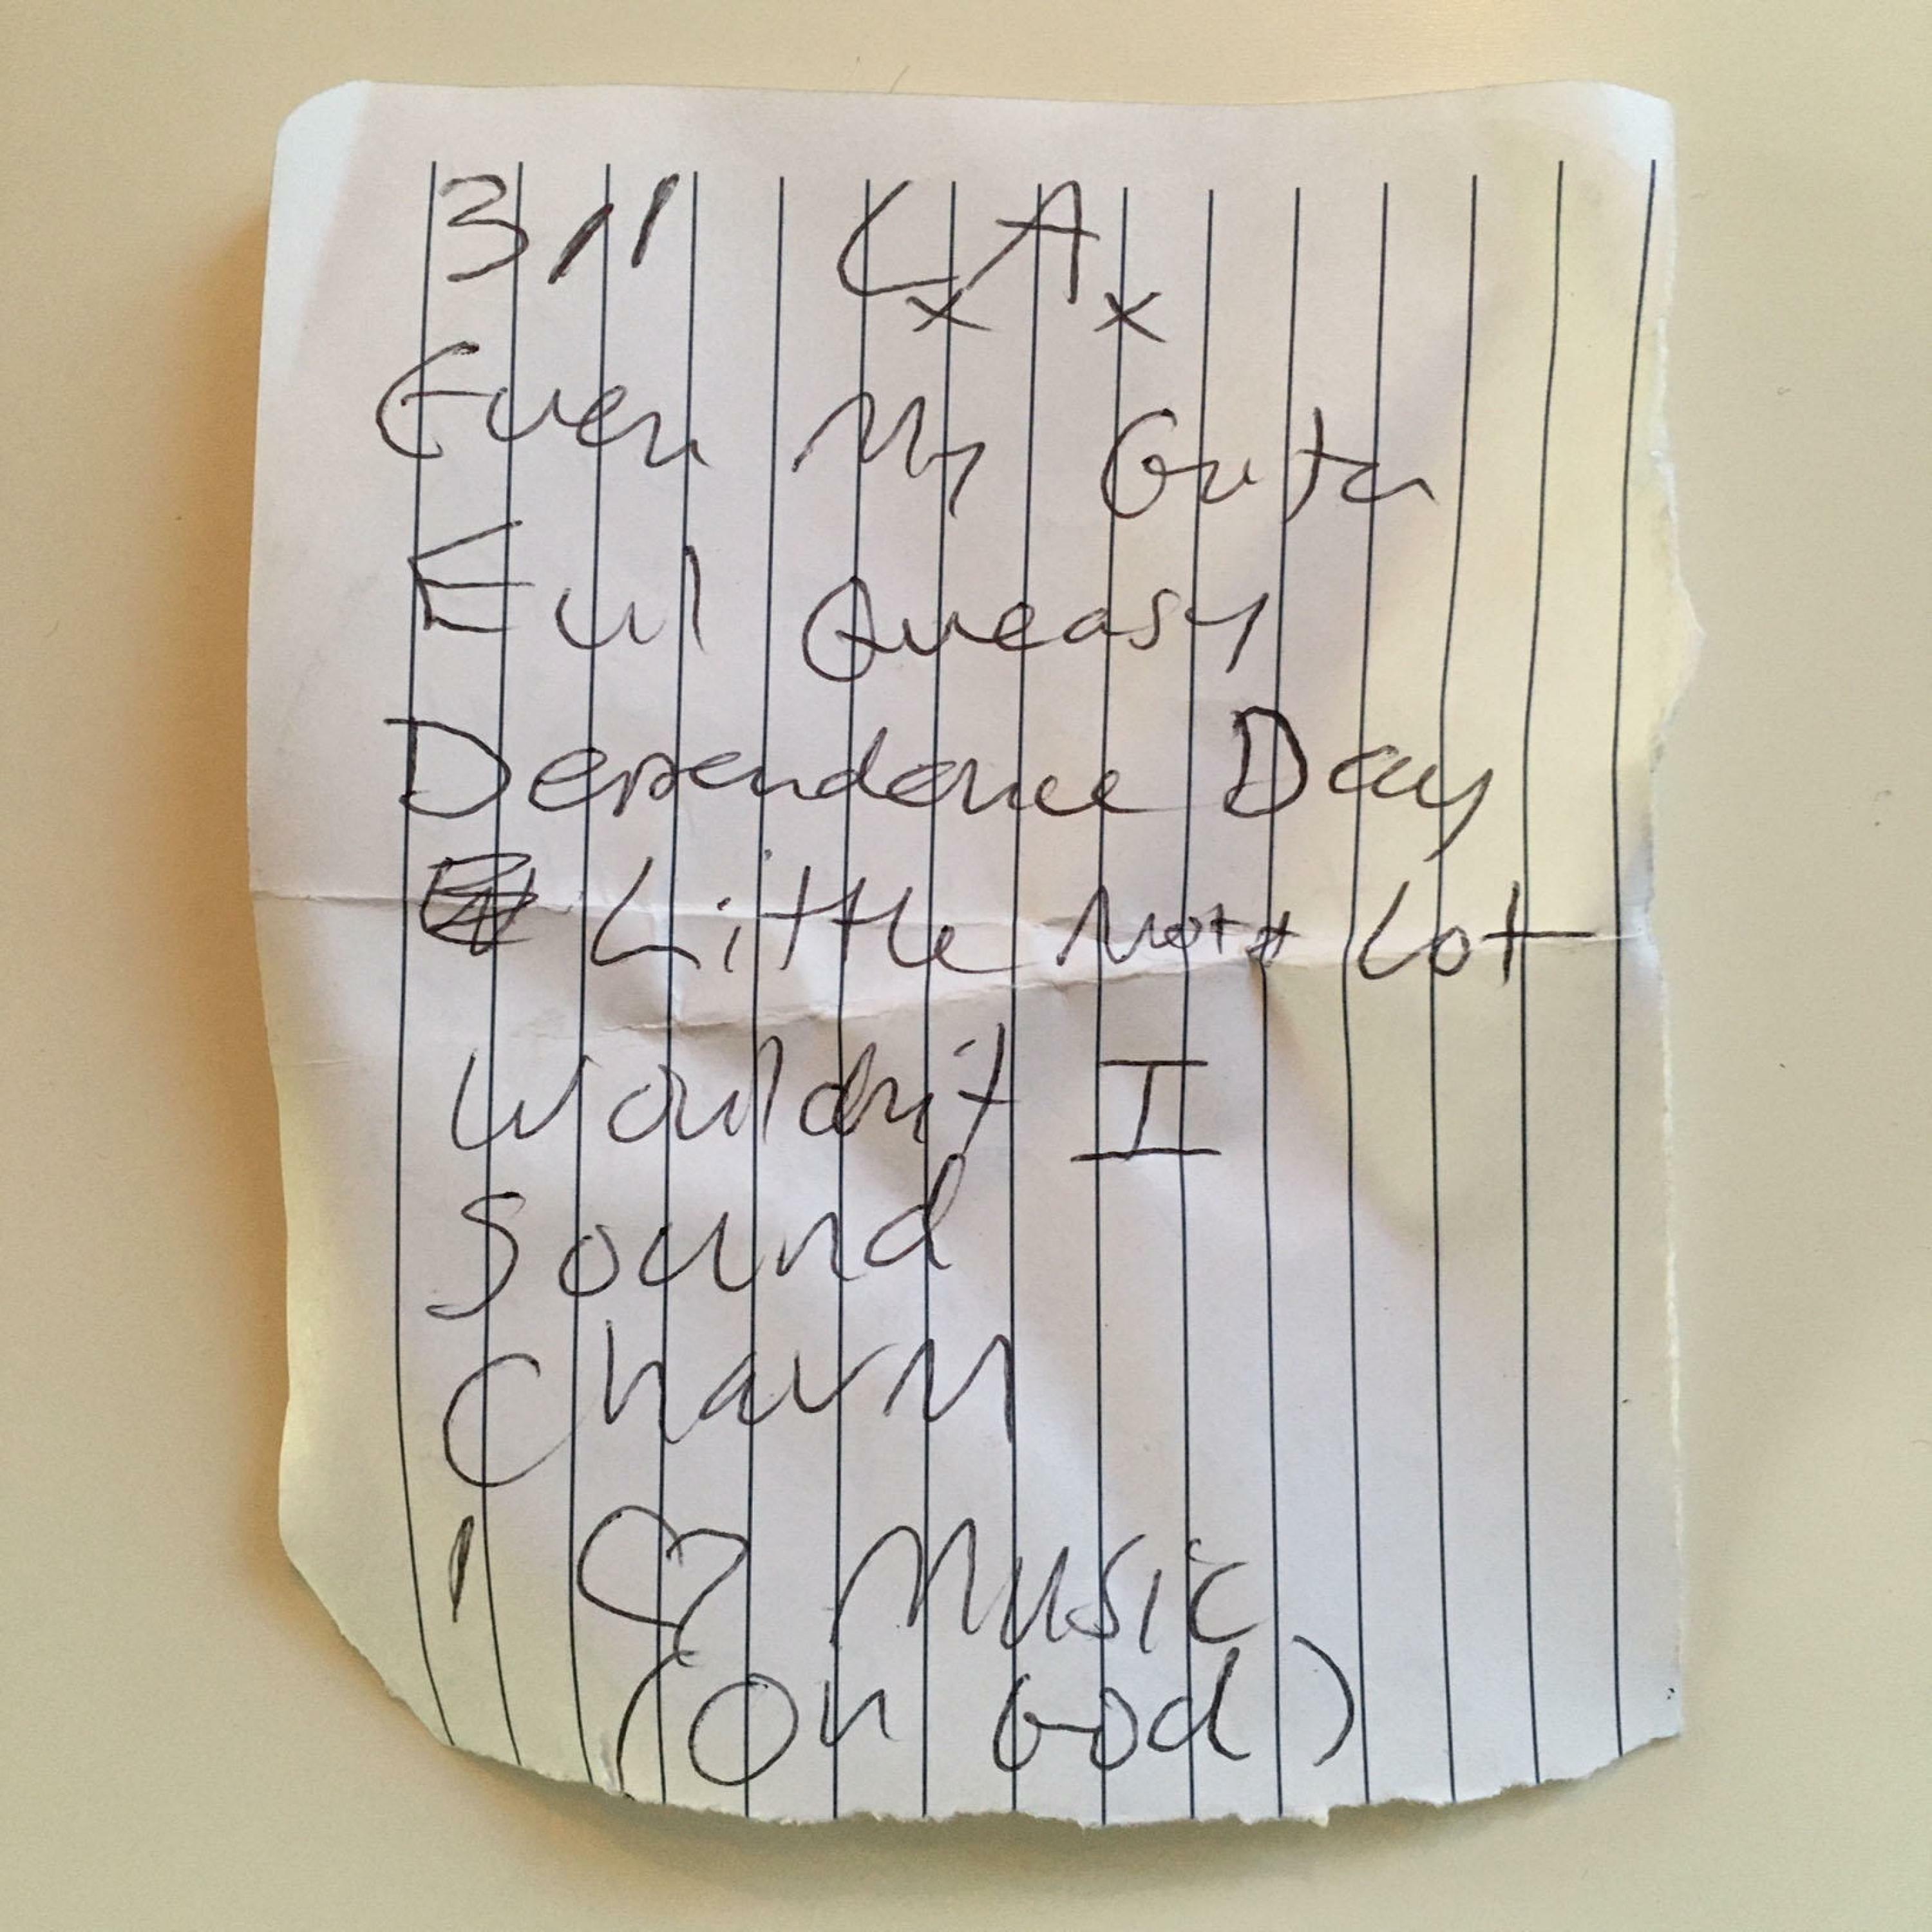 3/1 LA
Even My Guitar
Evil Queasy
Dependence Day
Little Not a Lot
Wouldn't I
Sound
Charm
I ♡ Music
(On God)